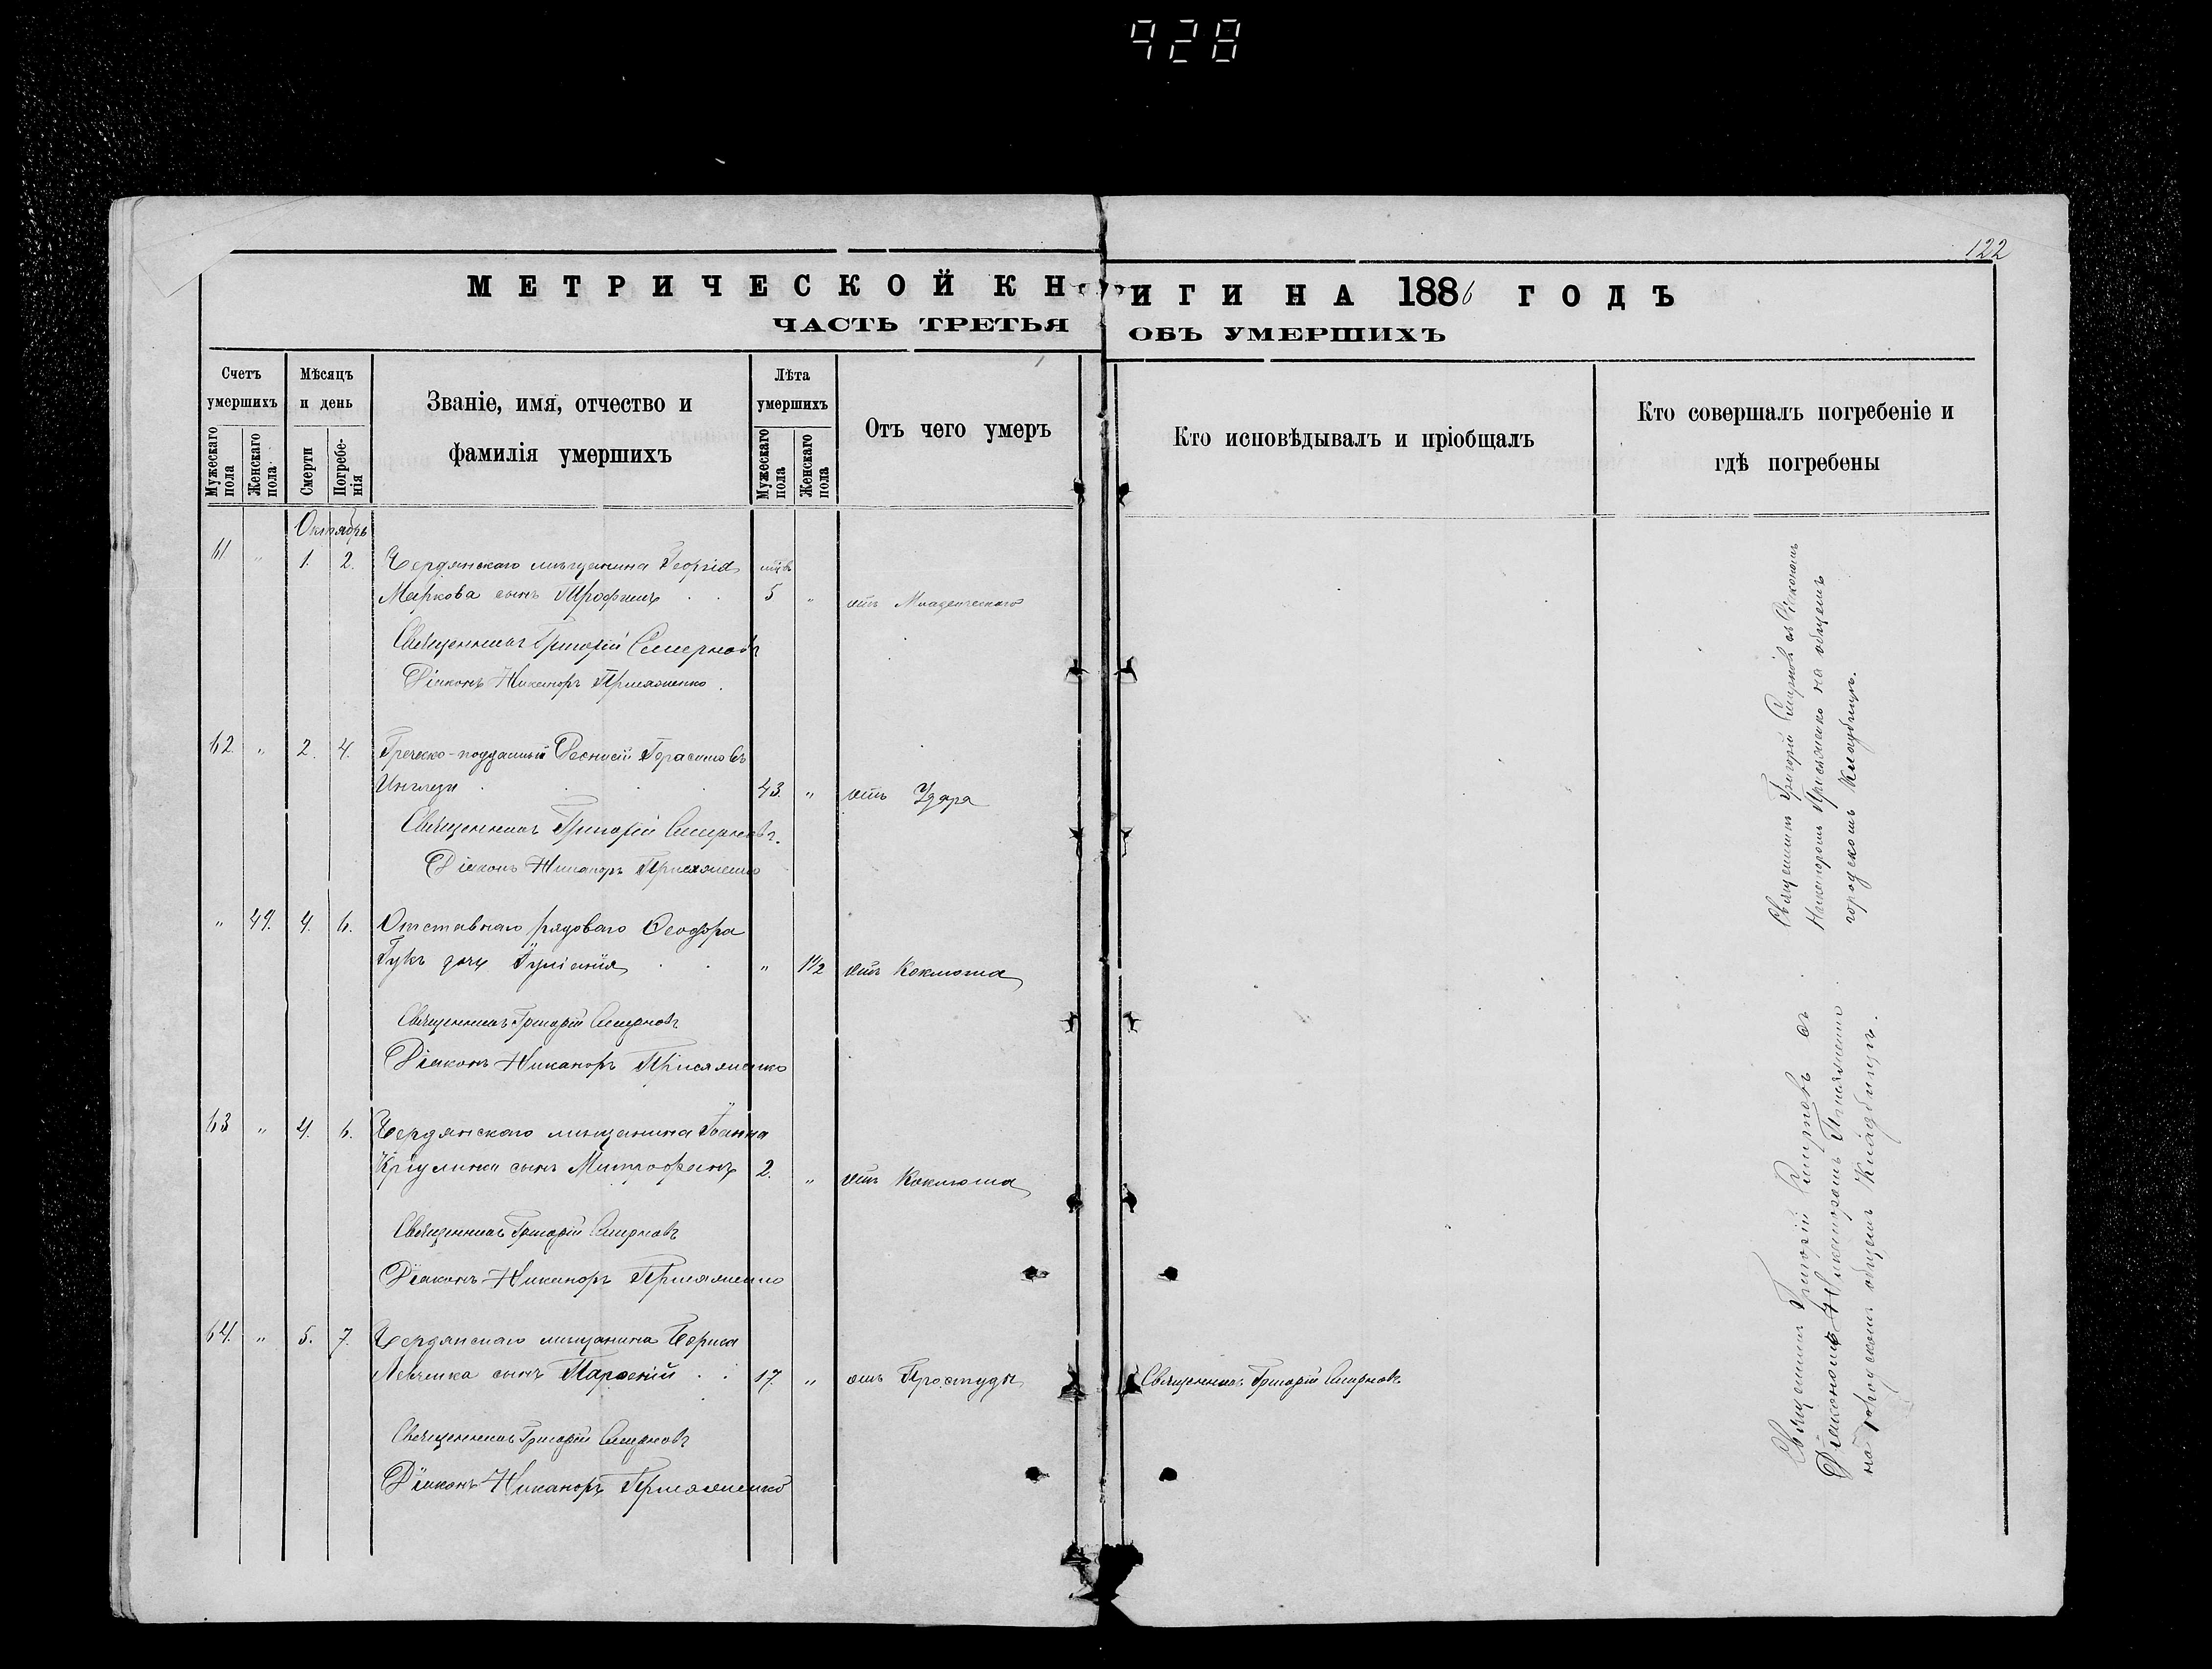 928
122
МЕТРИЧЕСКОЙ КНИГИ НА 1886 ГОДЪ
ЧАСТЬ ТРЕТЬЯ ОБЪ УМЕРШИХЪ
Счетъ умершихъ
Мужескаго пола
Женскаго пола
Мѣсяцъ и день
Смерти
Погребенія
Званіе, имя, отчество и фамилія умершихъ
Лѣта умершихъ
Мужескаго пола
Женскаго пола
Отъ чего умеръ
Кто исповѣдывалъ и пріобщалъ
Кто совершалъ погребеніе и гдѣ погребены
Октябрь
61 " 1. 2. Бердянскаго мѣщанина Георгія
Маркова сынъ Трофимъ 5 " отъ Младенческаго
Священникъ Григорій Смирновъ
Діаконъ Никаноръ Присяженко.
62 " 2. 4. Греческо-подданный Діонисій Герасимовъ
Инглези 43. " отъ Удара
Священникъ Григорій Смирновъ.
Діаконъ Никаноръ Присяженко
" 49. 4. 6. Отставнаго рядоваго Ѳеодора
Гукъ дочь Іуліанія " 1 1/2 отъ Коклюша
Священникъ Григорій Смирновъ
Діаконъ Никаноръ Присяженко
63 " 4. 6. Бердянскаго мѣщанина Іоанна
сынъ Митрофанъ 2. " отъ Коклюша
Священникъ Григорій Смирновъ
Діаконъ Никаноръ Присяженко
64. " 5. 7. Бердянскаго мѣщанина Бориса
Левченка сынъ Парѳеній 17. " отъ Простуды Священникъ Григорій Смирновъ
Священникъ Григорій Смирновъ
Діаконъ Никаноръ Присяженко
Священникъ Григорій Смирновъ съ Діакономъ
Никаноромъ Присяженко на общемъ
городскомъ Кладбищѣ.
Священникъ Григорій Смирновъ съ
Діакономъ Никаноромъ Присяженко
на городскомъ общемъ Кладбищѣ.